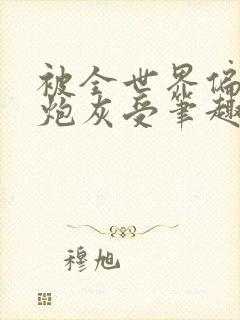 被全世界偏
炮灰受笔趣
穆旭